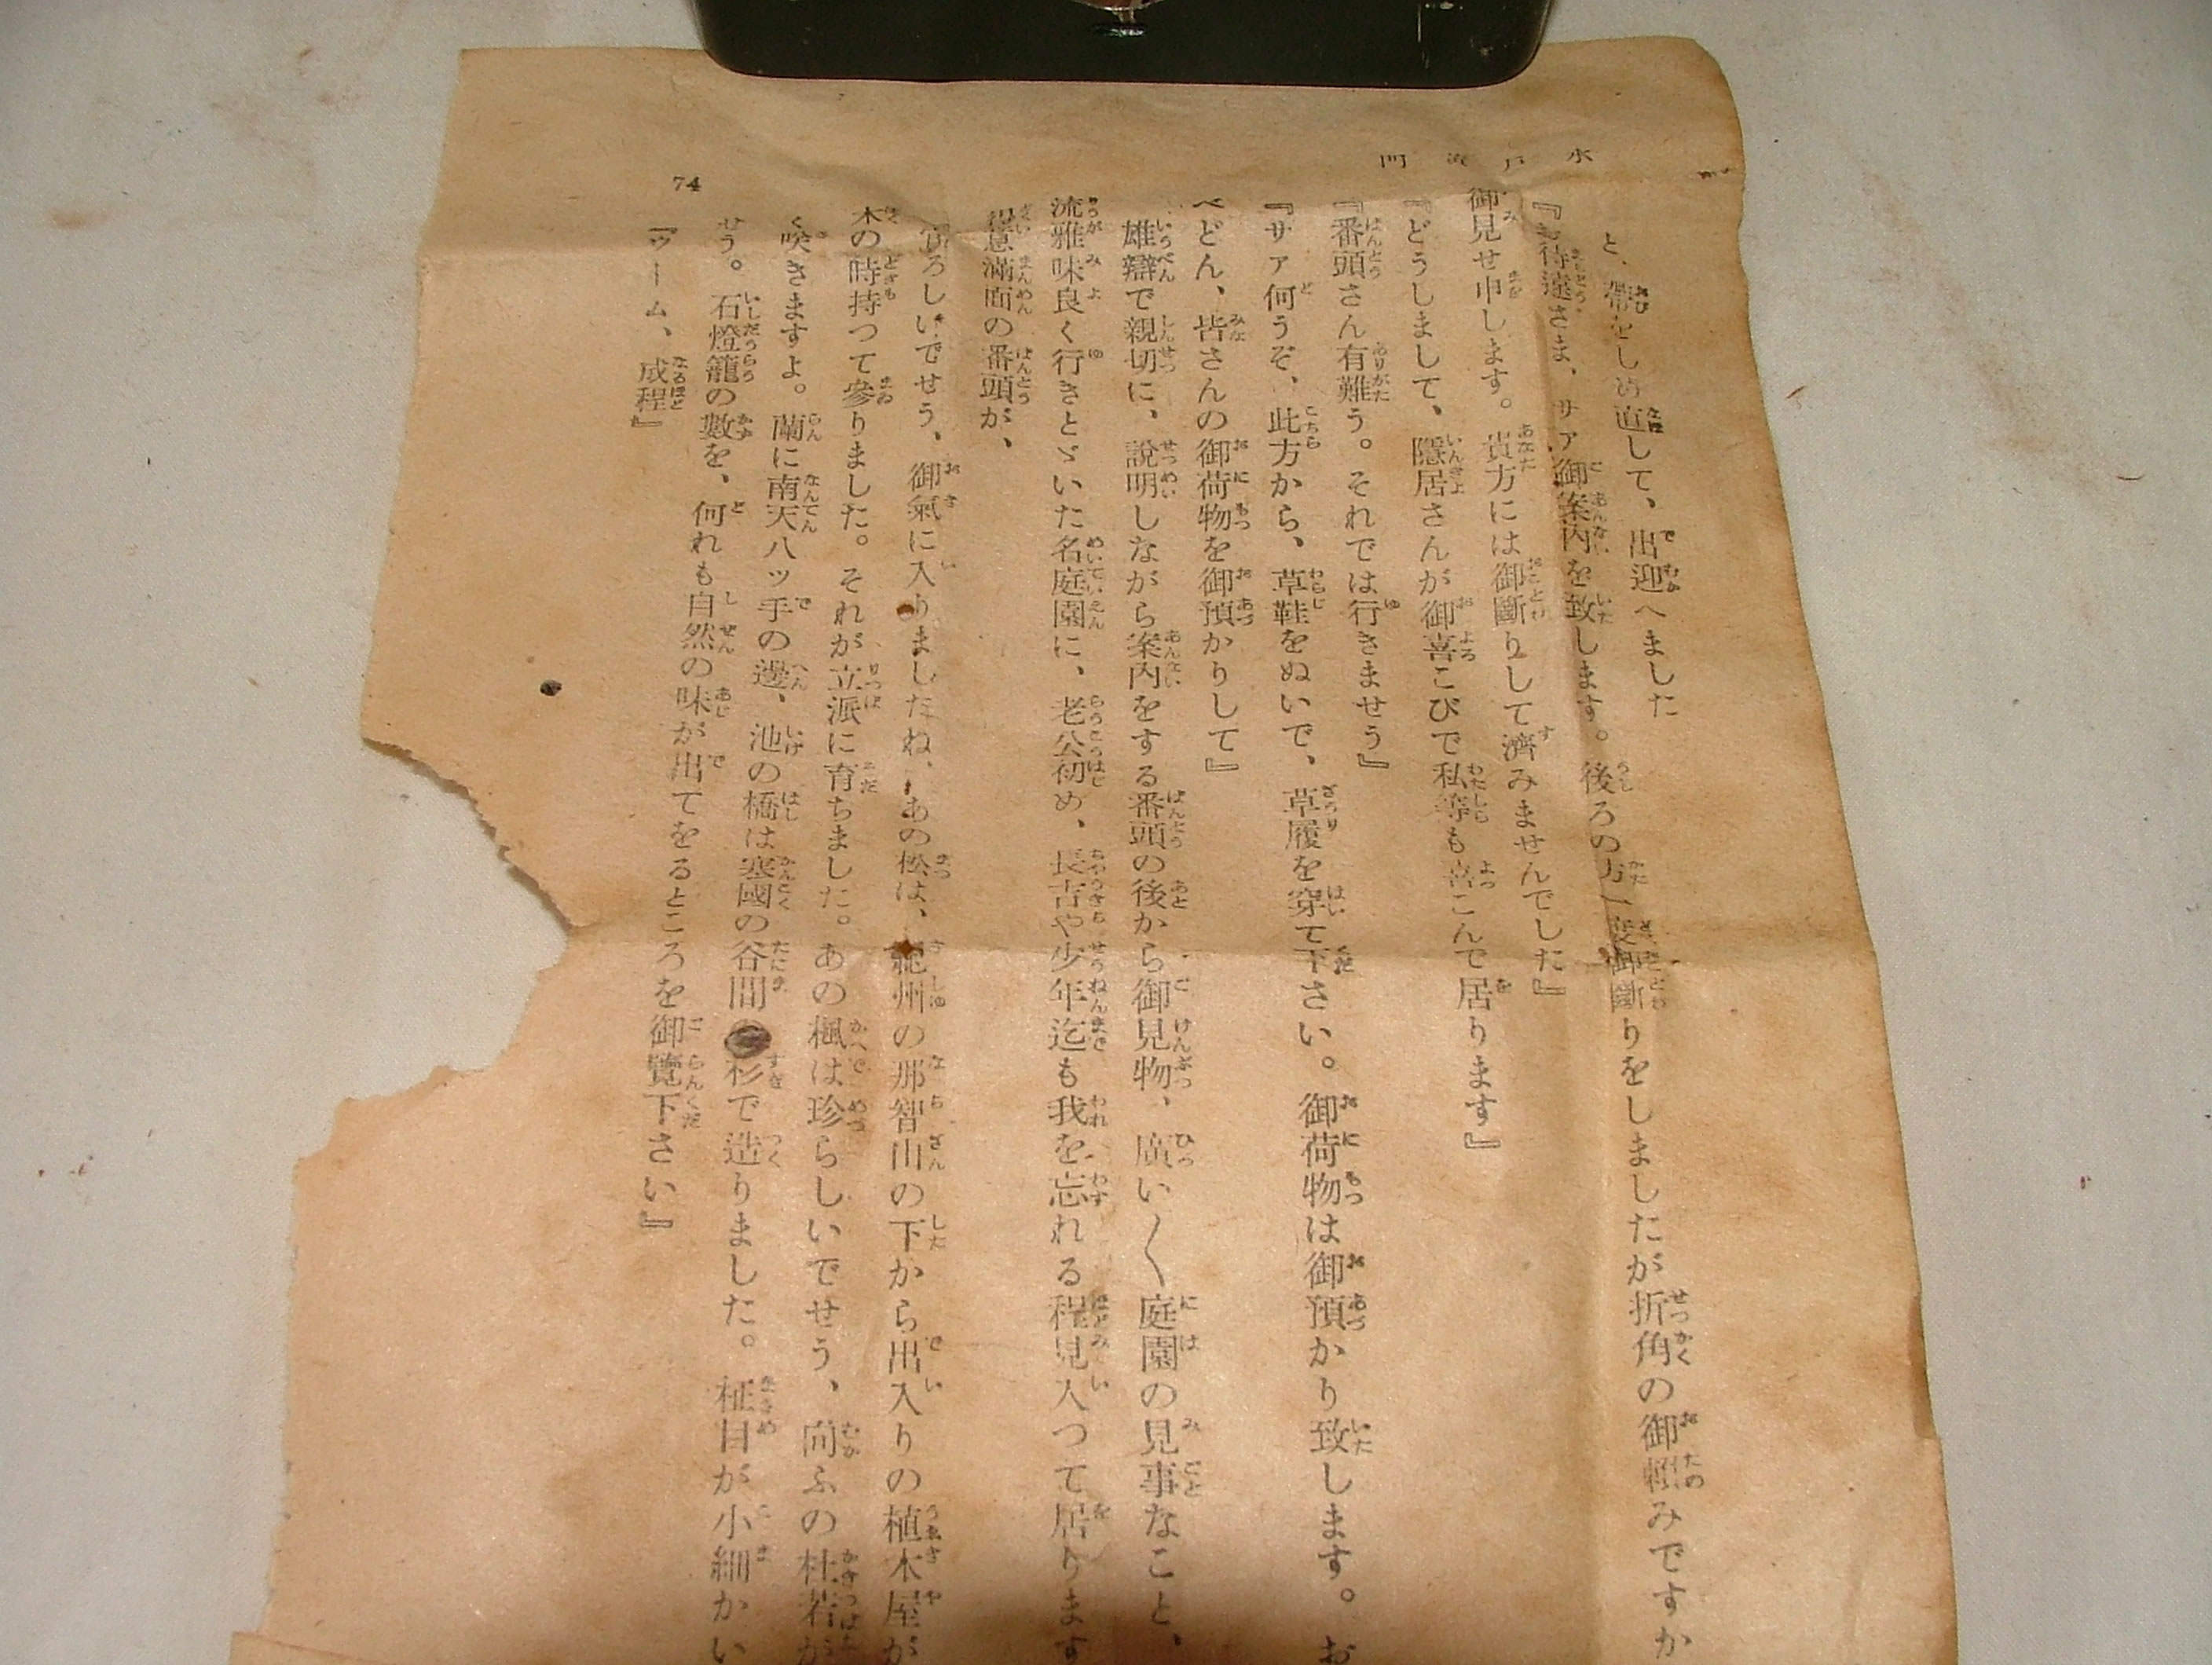 水戸黄門
と、帶をしめ直して、出迎へました
『お待遠さま、サア御案内を致します。後ろの方一度御斷りをしましたが折角の御賴みですか
御見せ申します。貴方には御斷りして濟みませんでした』
『どうしまして、隱居さんが御喜こびで私等も喜こんで居ります』
『番頭さん有難う。それでは行きませう』
『サア何うぞ、此方から、草鞋をぬいで、草履を穿て下さい。御荷物は御預かり致します。お
べどん、皆さんの御荷物を御預かりして』
雄辯で親切に、說明しながら案内をする番頭の後から御見物、廣い〱庭園の見事なこと、
流雅味良く行きとゞいた名庭園に、老公初め、長吉や少年迄も我を忘れる程見入つて居ります
得意滿面の番頭が、
宜ろしいでせう、御氣に入りましたね、あの松は、紀州の那智山の下から出入りの植木屋が
木の時持つて參りました。それが立派に育ちました。あの楓は珍らしいでせう、向ふの杜若が
く咲きますよ。蘭に南天八ッ手の邊、池の橋は寒國の谷間の杉で造りました。柾目が小細かい
せう。石燈籠の數を、何れも自然の味が出てをるところを御覽下さい』
『ウーム、成程』
74